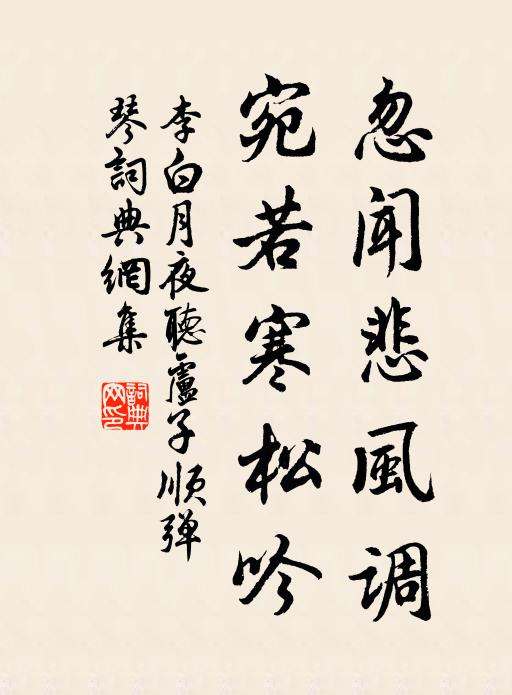 忽闻悲風调
宛若寒松吟
李白月夜聽盧子順弹
琴詞典網集
詞典
网印